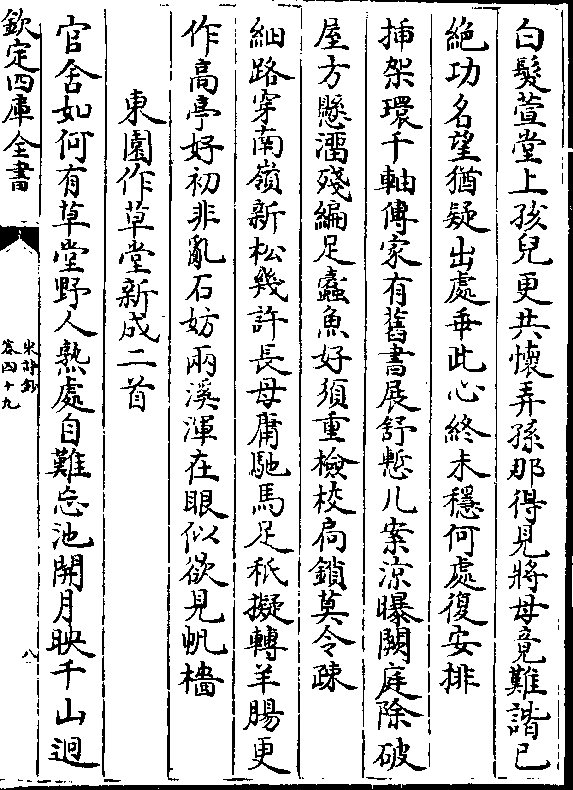 白髮萱堂上孩兒更共懷弄孫那得見將母竟難諧已
絶功名望猶疑出處乖此心終未穩何處復安排
挿架環千軸傳家有舊書展舒慙儿案涼曝闕庭除破
屋方懸溜殘編足蠧魚好須重檢校扃鎖莫令疎
細路穿南嶺新松幾許長毋庸馳馬足秪擬轉羊腸更
作高亭好初非亂石妨兩溪渾在眼似欲見帆檣
東園作草堂新成二首
官舍如何有草堂野人熟處自難忘池開月映千山迥
欽定四庫全書
宋詩鈔
卷四十九
八